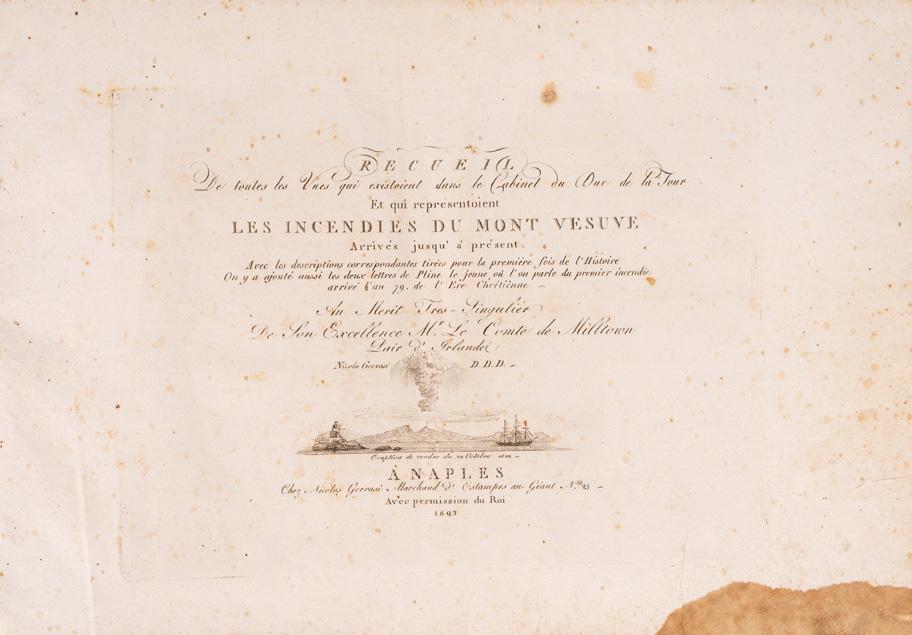 RECUEIL
De toutes les Vues qui existoient dans le Cabinet du Duc de la Tour
Et qui représentoient
LES INCENDIES DU MONT VESUVE
Arrivés jusqu' à présent
Avec les descriptions correspondantes tirées pour la première fois de l'Histoire
On y a ajouté aussi les deux lettres de Pline le jeune, où l'on parle du premier incendie
arrivé l'an 79. de l'Ere Chrétiènne -
Au Merit Tres-Singulièr
De Son Excellence Mr. Le Comte de Milltown
Pair d'Irlande
Nicola Gervasi D. D. D. -
Eruption de cendre du 22 Octobre 1822 -
À NAPLES
Chez Nicolas Gervasi Marchand d'Estampes au Géant No. 23 -
Avec permission du Roi